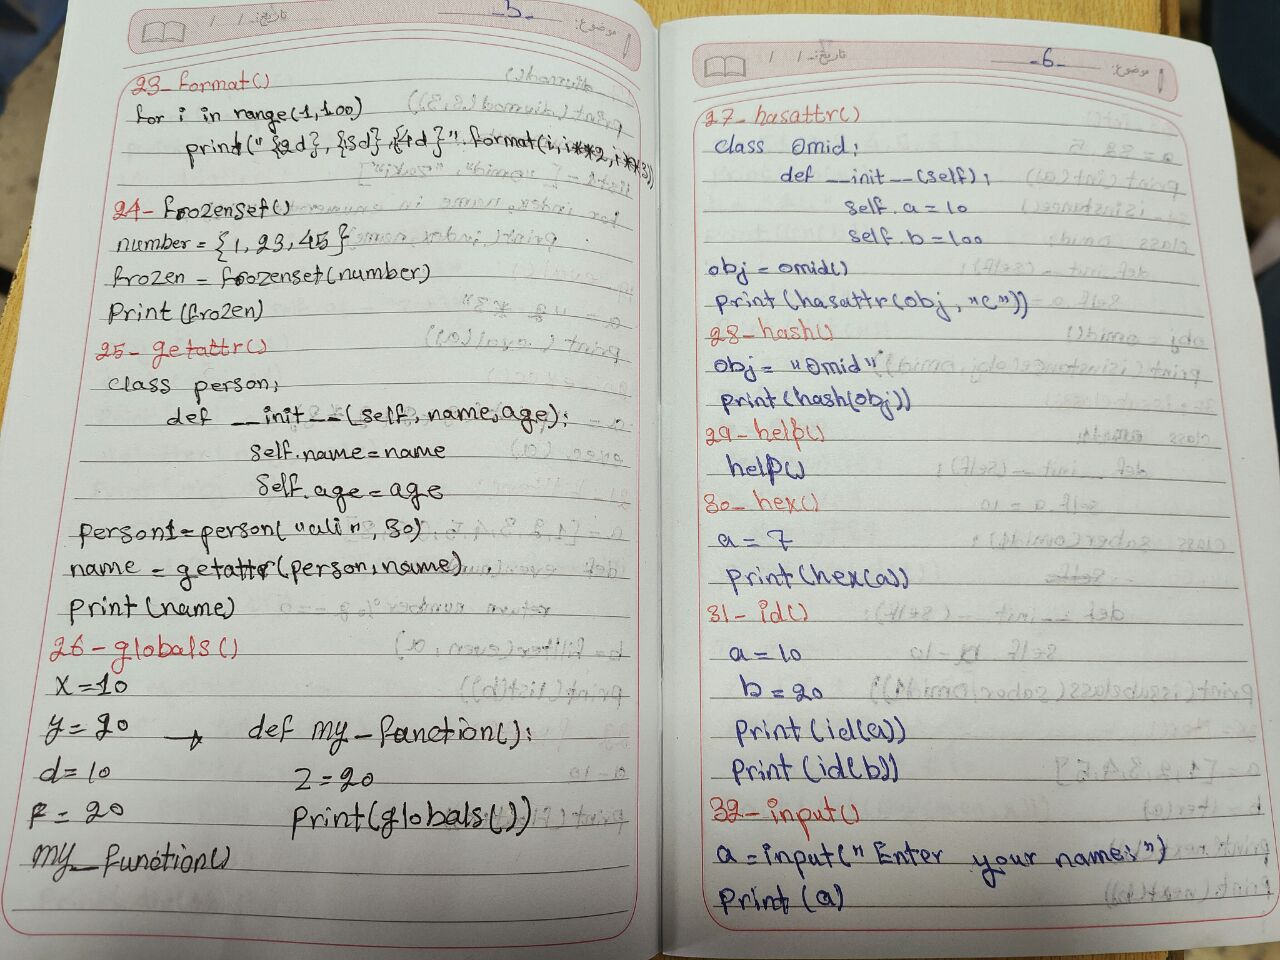 موضوع:
-5-
تاریخ: / /
23-format()
for i in range(1,100)
print("{2d},{3d},{4d}".format(i,i**2,i**3))
24-frozenset()
number={1,23,45}
frozen=frozenset(number)
print(frozen)
25-getattr()
class person:
def __init__(self,name,age):
self.name=name
self.age=age
person1=person("ali",30)
name=getattr(person,name)
print(name)
26-globals()
x=10
y=20 → def my_function():
d=10 z=20
F=20 print(globals())
my_function()
موضوع:
-6-
تاریخ: / /
27-hasattr()
class omid:
def __init__(self):
self.a=10
self.b=100
obj=omid()
print(hasattr(obj,"c"))
28-hash()
obj="omid"
print(hash(obj))
29-help()
help()
30-hex()
a=7
print(hex(a))
31-id()
a=10
b=20
print(id(a))
print(id(b))
32-input()
a=input("Enter your names")
print(a)